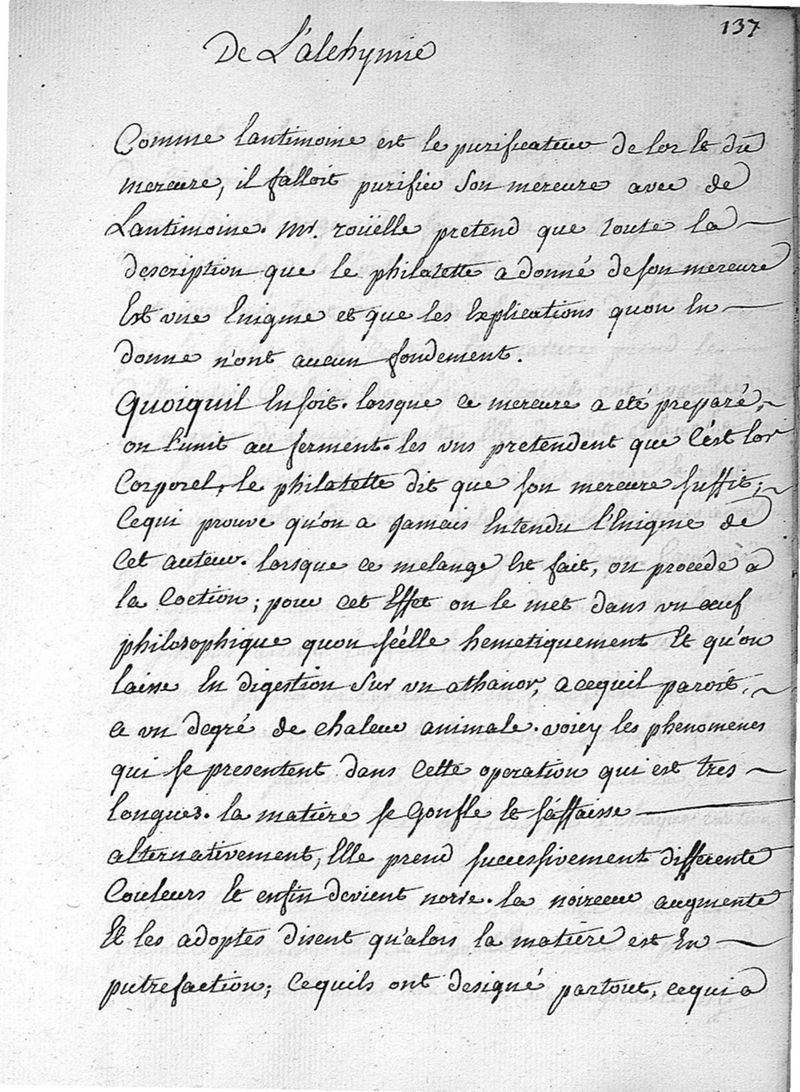 137
De L'alchymie
Comme lantimoine est le purificateur de lor et du
mercure, il falloit purifier son mercure avec de
Lantimoine. Mr. roüelle pretend que toute la
description que le philalette a donné de son mercure
Est une Enigme et que les Explications quon En
donne n'ont aucun fondement.
Quoiquil En soit. lorsque ce mercure a eté preparé,
on l'unit au ferment. les uns pretendent que C'est lor
Corporel, le philalette dit que son mercure suffit;
Cequi prouve qu'on a Jamais Entendu l'Enigme de
Cet auteur. lorsque ce melange Est fait, on procede a
la Coction; pour cet Effet on le met dans un œuf
philosophique quon séelle hemetiquement Et qu'on
laisse En digestion sur un athanor, a cequil paroit,
a un degré de chaleur animale. voicy les phenomenes
qui se presentent dans Cette operation qui est tres
longues. la matiere se Gonfle Et s'affaisse
alternativement, Elle prend successivement differente
Couleurs Et enfin devient noire. la noirceur augmente
Et les adoptes disent qu'alors la matiere est En
putrefaction; Cequils ont designé partout, cequi a